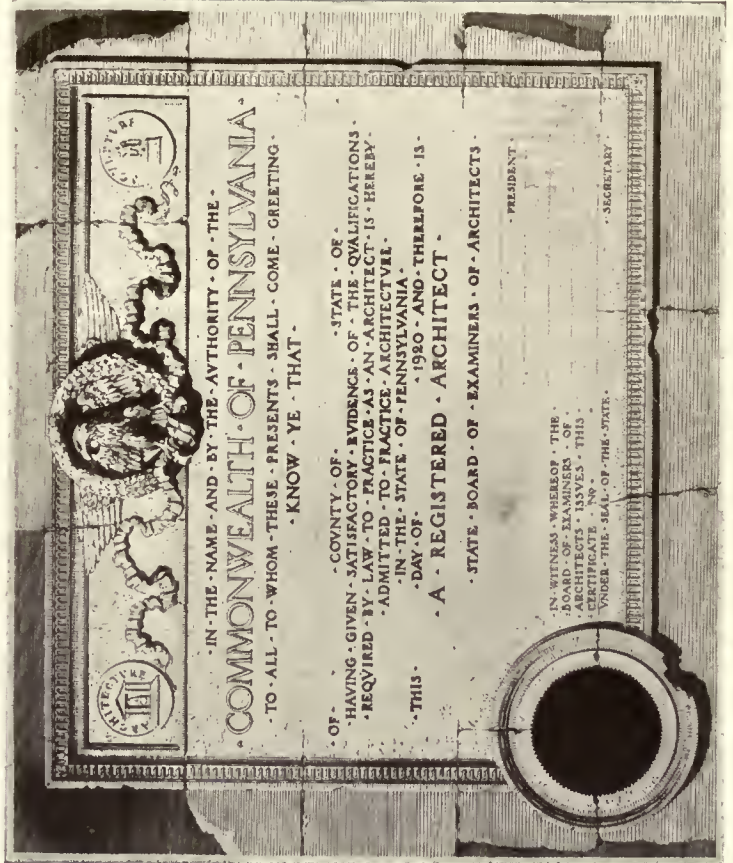 ARCHITECTVRE
· IN · THE · NAME · AND · BY · THE · AVTHORITY · OF · THE ·
· COMMONWEALTH · OF · PENNSYLVANIA ·
· TO · ALL · TO · WHOM · THESE · PRESENTS · SHALL · COME · GREETING ·
· KNOW · YE · THAT ·
· OF · · COVNTY · OF · · STATE · OF ·
· HAVING · GIVEN · SATISFACTORY · EVIDENCE · OF · THE · QVALIFICATIONS ·
· REQVIRED · BY · LAW · TO · PRACTICE · AS · AN · ARCHITECT · IS · HEREBY ·
· ADMITTED · TO · PRACTICE · ARCHITECTVRE ·
· IN · THE · STATE · OF · PENNSYLVANIA ·
· THIS · · DAY · OF · · 1920 · AND · THEREFORE · IS ·
· A · REGISTERED · ARCHITECT ·
· STATE · BOARD · OF · EXAMINERS · OF · ARCHITECTS ·
· PRESIDENT ·
IN · WITNESS · WHEREOF · THE ·
BOARD · OF · EXAMINERS · OF ·
ARCHITECTS · ISSVES · THIS ·
CERTIFICATE · NO ·
VNDER · THE · SEAL · OF · THE · STATE ·
· SECRETARY ·